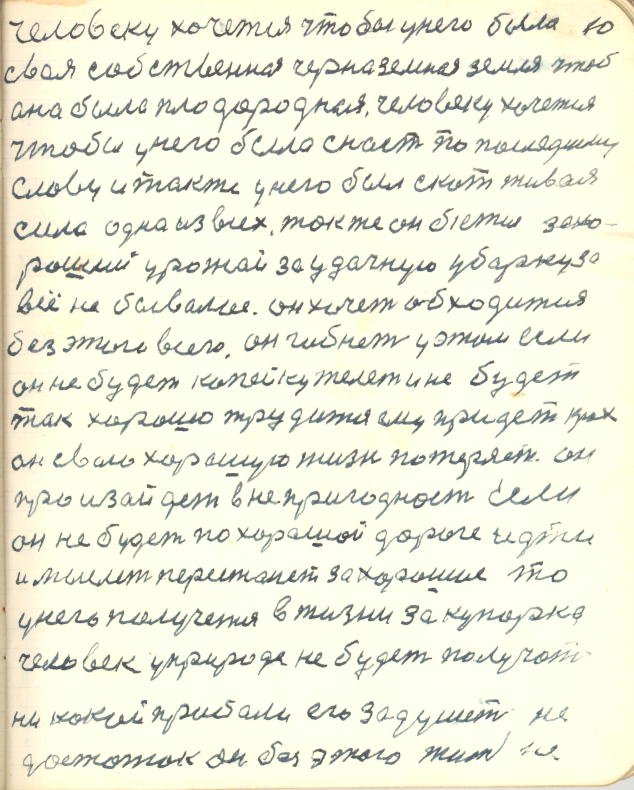 человеку хочется чтобы унего была 10
свая собственная черназемная земля чтоб
ана была плодородная, человеку хочется
чтобы унего была снаст по последниму
слову и также унего был скот живая
сила одна извсех, также он бьется захо-
роший урожай заудачную убарку за
всё не бывалае. он хочет обходится
без этого всего, он гибнет у этом если
он не будет копейку жалет и не будет
так хорошо трудится ему придет крах
он сваю харошую жизн потеряет. он
произайдет в непригодност если
он не будет по хорошой дороге идти
и мыслет перестанет за хорошие то
унего получется в жизни закупорка
человек уприроде не будет получат
ни какой прибали его задушет не
достаток он без этого жит не